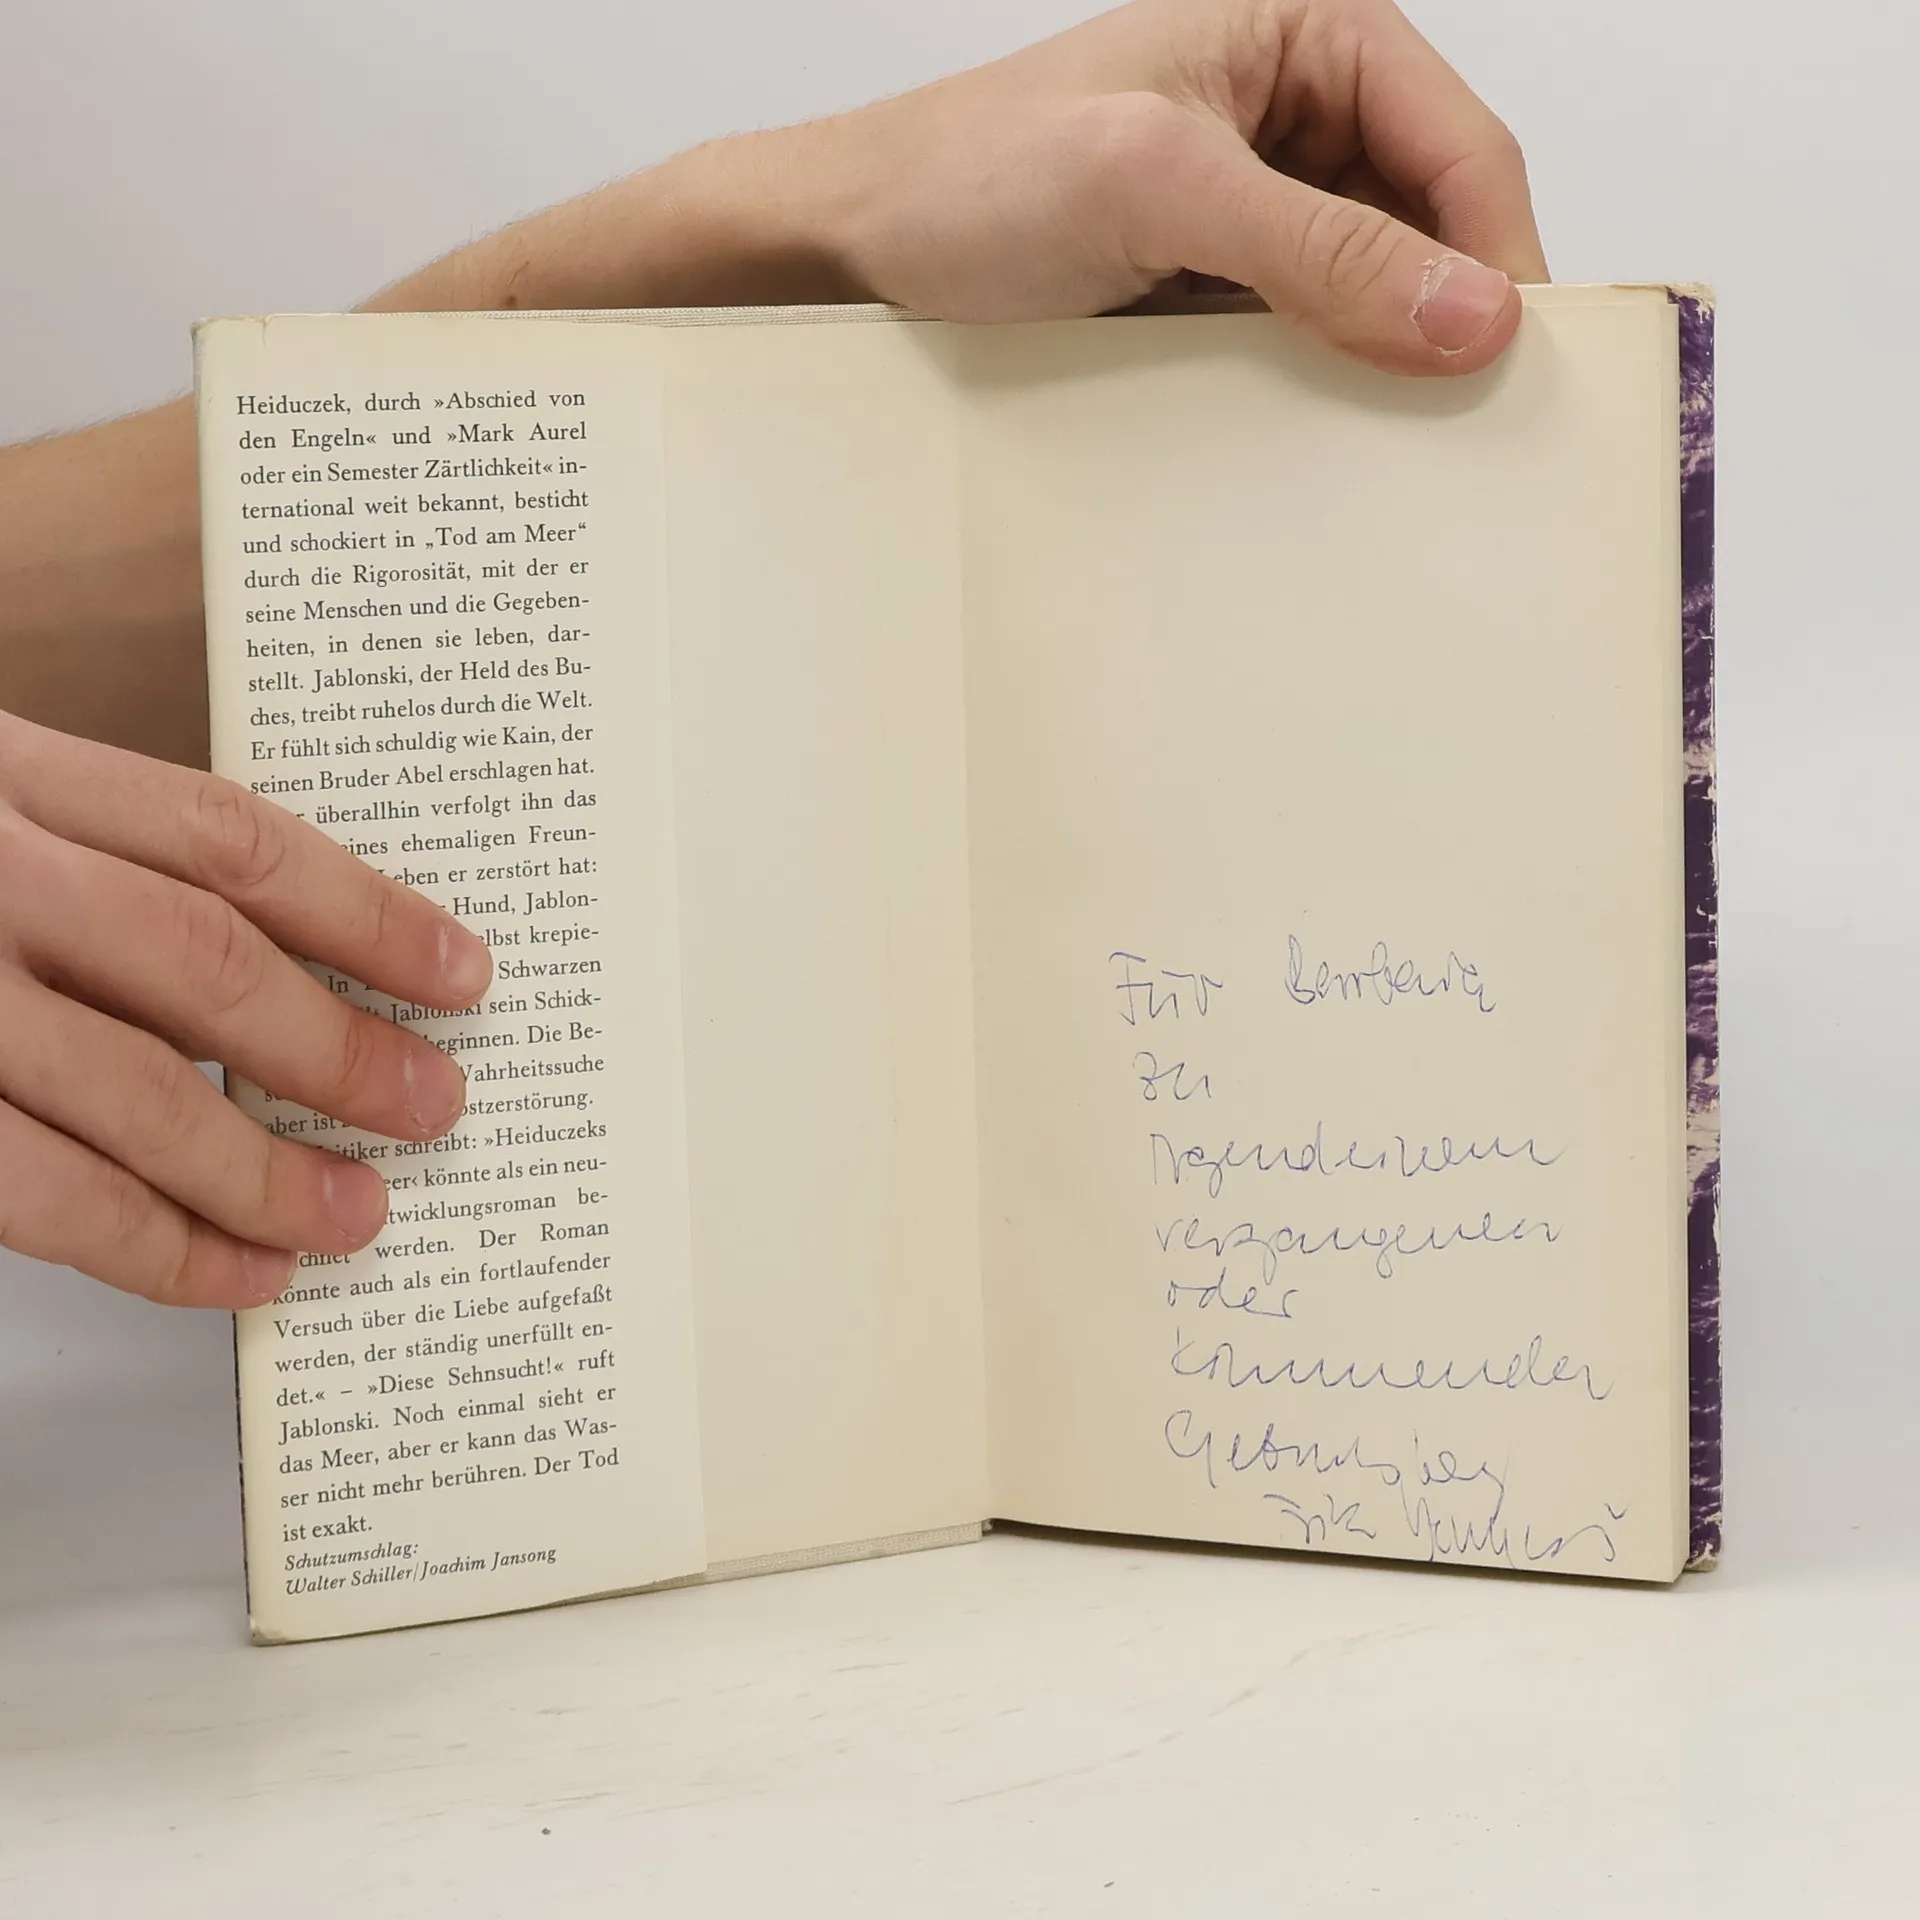 Heiduczek, durch »Abschied von
den Engeln« und »Mark Aurel
oder ein Semester Zärtlichkeit« in-
ternational weit bekannt, besticht
und schockiert in „Tod am Meer“
durch die Rigorosität, mit der er
seine Menschen und die Gegeben-
heiten, in denen sie leben, dar-
stellt. Jablonski, der Held des Bu-
ches, treibt ruhelos durch die Welt.
Er fühlt sich schuldig wie Kain, der
seinen Bruder Abel erschlagen hat.
überallhin verfolgt ihn das
ehemaligen Freun-
er zerstört hat:
Hund, Jablon-
krepie-
In Schwarzen
Jablonski sein Schick-
Die Be-
Wahrheitssuche
aber ist
schreibt: »Heiduczeks
könnte als ein neu-
be-
werden. Der Roman
könnte auch als ein fortlaufender
Versuch über die Liebe aufgefaßt
werden, der ständig unerfüllt en-
det.« – »Diese Sehnsucht!« ruft
Jablonski. Noch einmal sieht er
das Meer, aber er kann das Was-
ser nicht mehr berühren. Der Tod
ist exakt.
Schutzumschlag:
Walter Schiller/Joachim Jansong
Für Barbara
zu
irgendeinem
vergangenen
oder
kommenden
Geburtstag